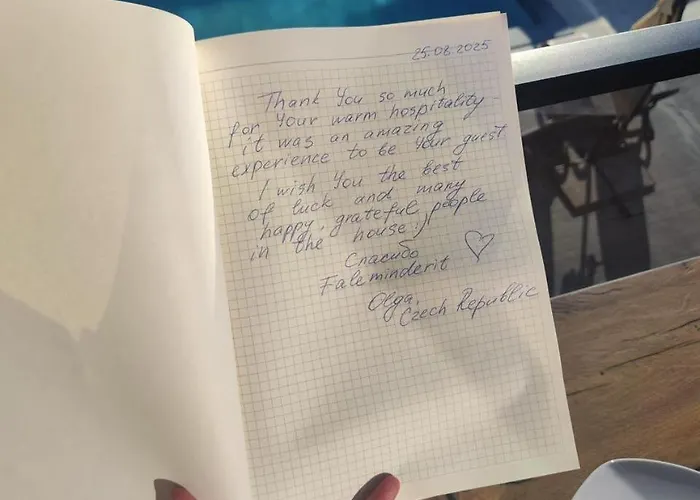 25.08.2025
Thank You so much
for Your warm hospitality
it was an amazing
experience to be Your guest
I wish You the best
of luck and many
happy, grateful people
in the house :)
Спасибо
Faleminderit
Olga,
Czech Republic